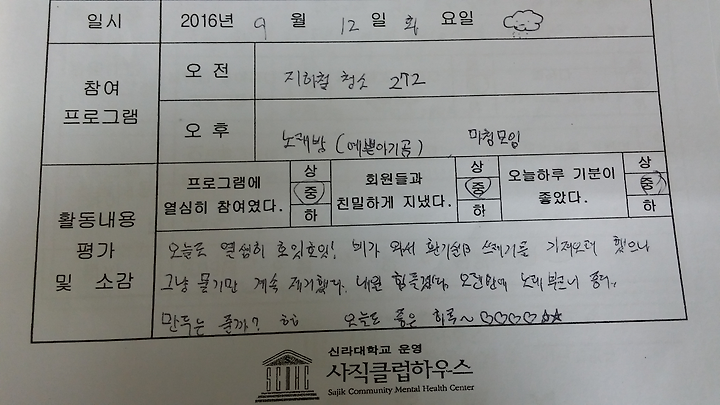 일시 2016년 9월 12일 화요일
참여 프로그램
오 전 지하철 청소 272
오 후 노래방 (예쁜아기곰) 마침모임
활동내용 평가 및 소감
프로그램에 열심히 참여였다. 상 중 하
회원들과 친밀하게 지냈다. 상 중 하
오늘하루 기분이 좋았다. 상 중 하
오늘도 열심히 호잇호잇! 비가 와서 쓰레기를 했으나
그냥 물기만 계속 제거했다. 오랜만에 노래 부르니 좋다..
만두는 줄까? 오늘도 좋은 하루~♡♡♡♡☆☆
신라대학교 운영
SCMHC
사직클럽하우스
Sajik Community Mental Health Center